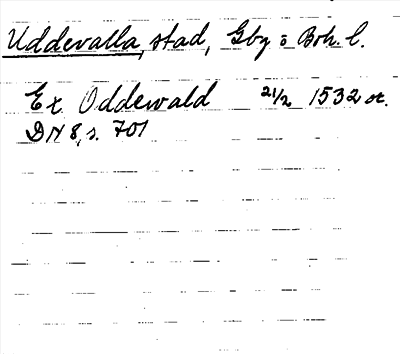 Uddevalla, stad, Gby o Boh. l.
Ex Oddewald 21/2 1532 or.
DN 8, s. 701